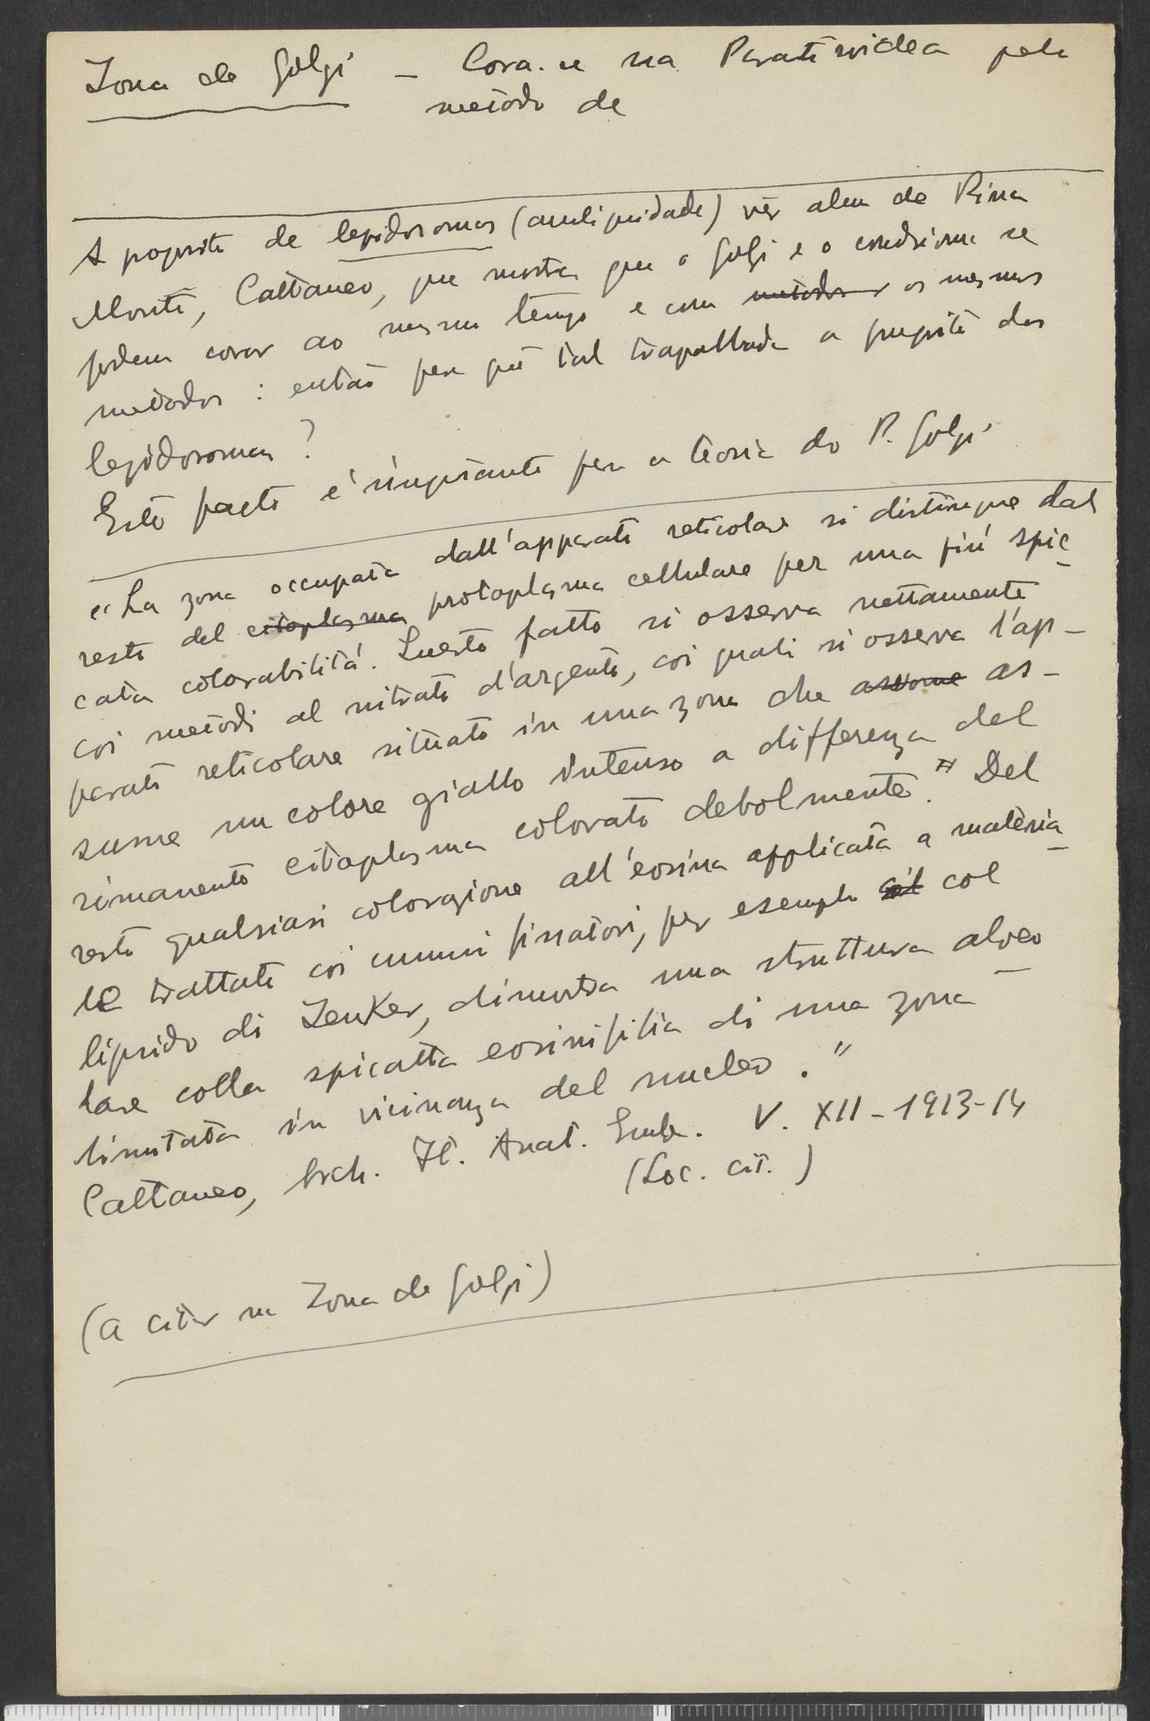 Zona de Golgi – Cora-se na Paratiroidea pelo
metodo de
A proposito de lepidosomas (ambiguidade) vêr alem de Rina
Monti, Cattaneo, que mostra que o Golgi e o condrioma se
podem corar ao mesmo tempo e com metodos os mesmos
metodos : então para quê tal trapalhada a proposito dos
lepidosomas ?
Este facto é importante para a teoria do P. Golgi
"La zona occupata dall'apparato reticolare si distingue dal
resto del citoplasma protoplasma cellulare per una più spic-
cata colorabilitá. Questo fatto si osserva nettamente
coi metodi al nitrato d'argento, coi quali si osserva l'ap-
parato reticolare situato in una zona che assome as-
sume un colore giallo intenso a differenza del
rimanente citoplasma colorato debolmente." Del
resto qualsiasi colorazione all'eosina applicata a materia-
le trattato coi comuni fissatori, per esempio col
liquido di Zenker, dimostra una struttura alveo-
lare colla spicatta eosinifilia di una zona
limitata in vicinanza del nucleo."
Cattaneo, Arch. It. Anat. Emb. V. XII – 1913-14
(Loc. cit.)
(a citar na Zona de Golgi)